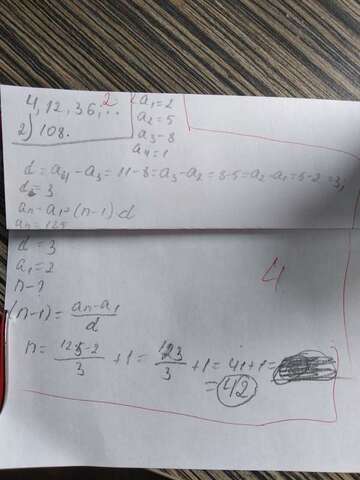 4, 12, 36, ... 2
2) 108.
a₁ = 2
a₂ = 5
a₃ - 8
a₄ = 1
d = a₄ - a₃ = 11 - 8 = a₃ - a₂ = 8-5 = a₂ - a₁ = 5-2 = 3;
d = 3
aₙ = a₁ + (n-1)·d
aₙ = 125
d = 3
a₁ = 2
n - ?
(n-1) = aₙ-a₁/d
n = 125-2/3 + 1 = 123/3 + 1 = 41 + 1 =
= 42
4